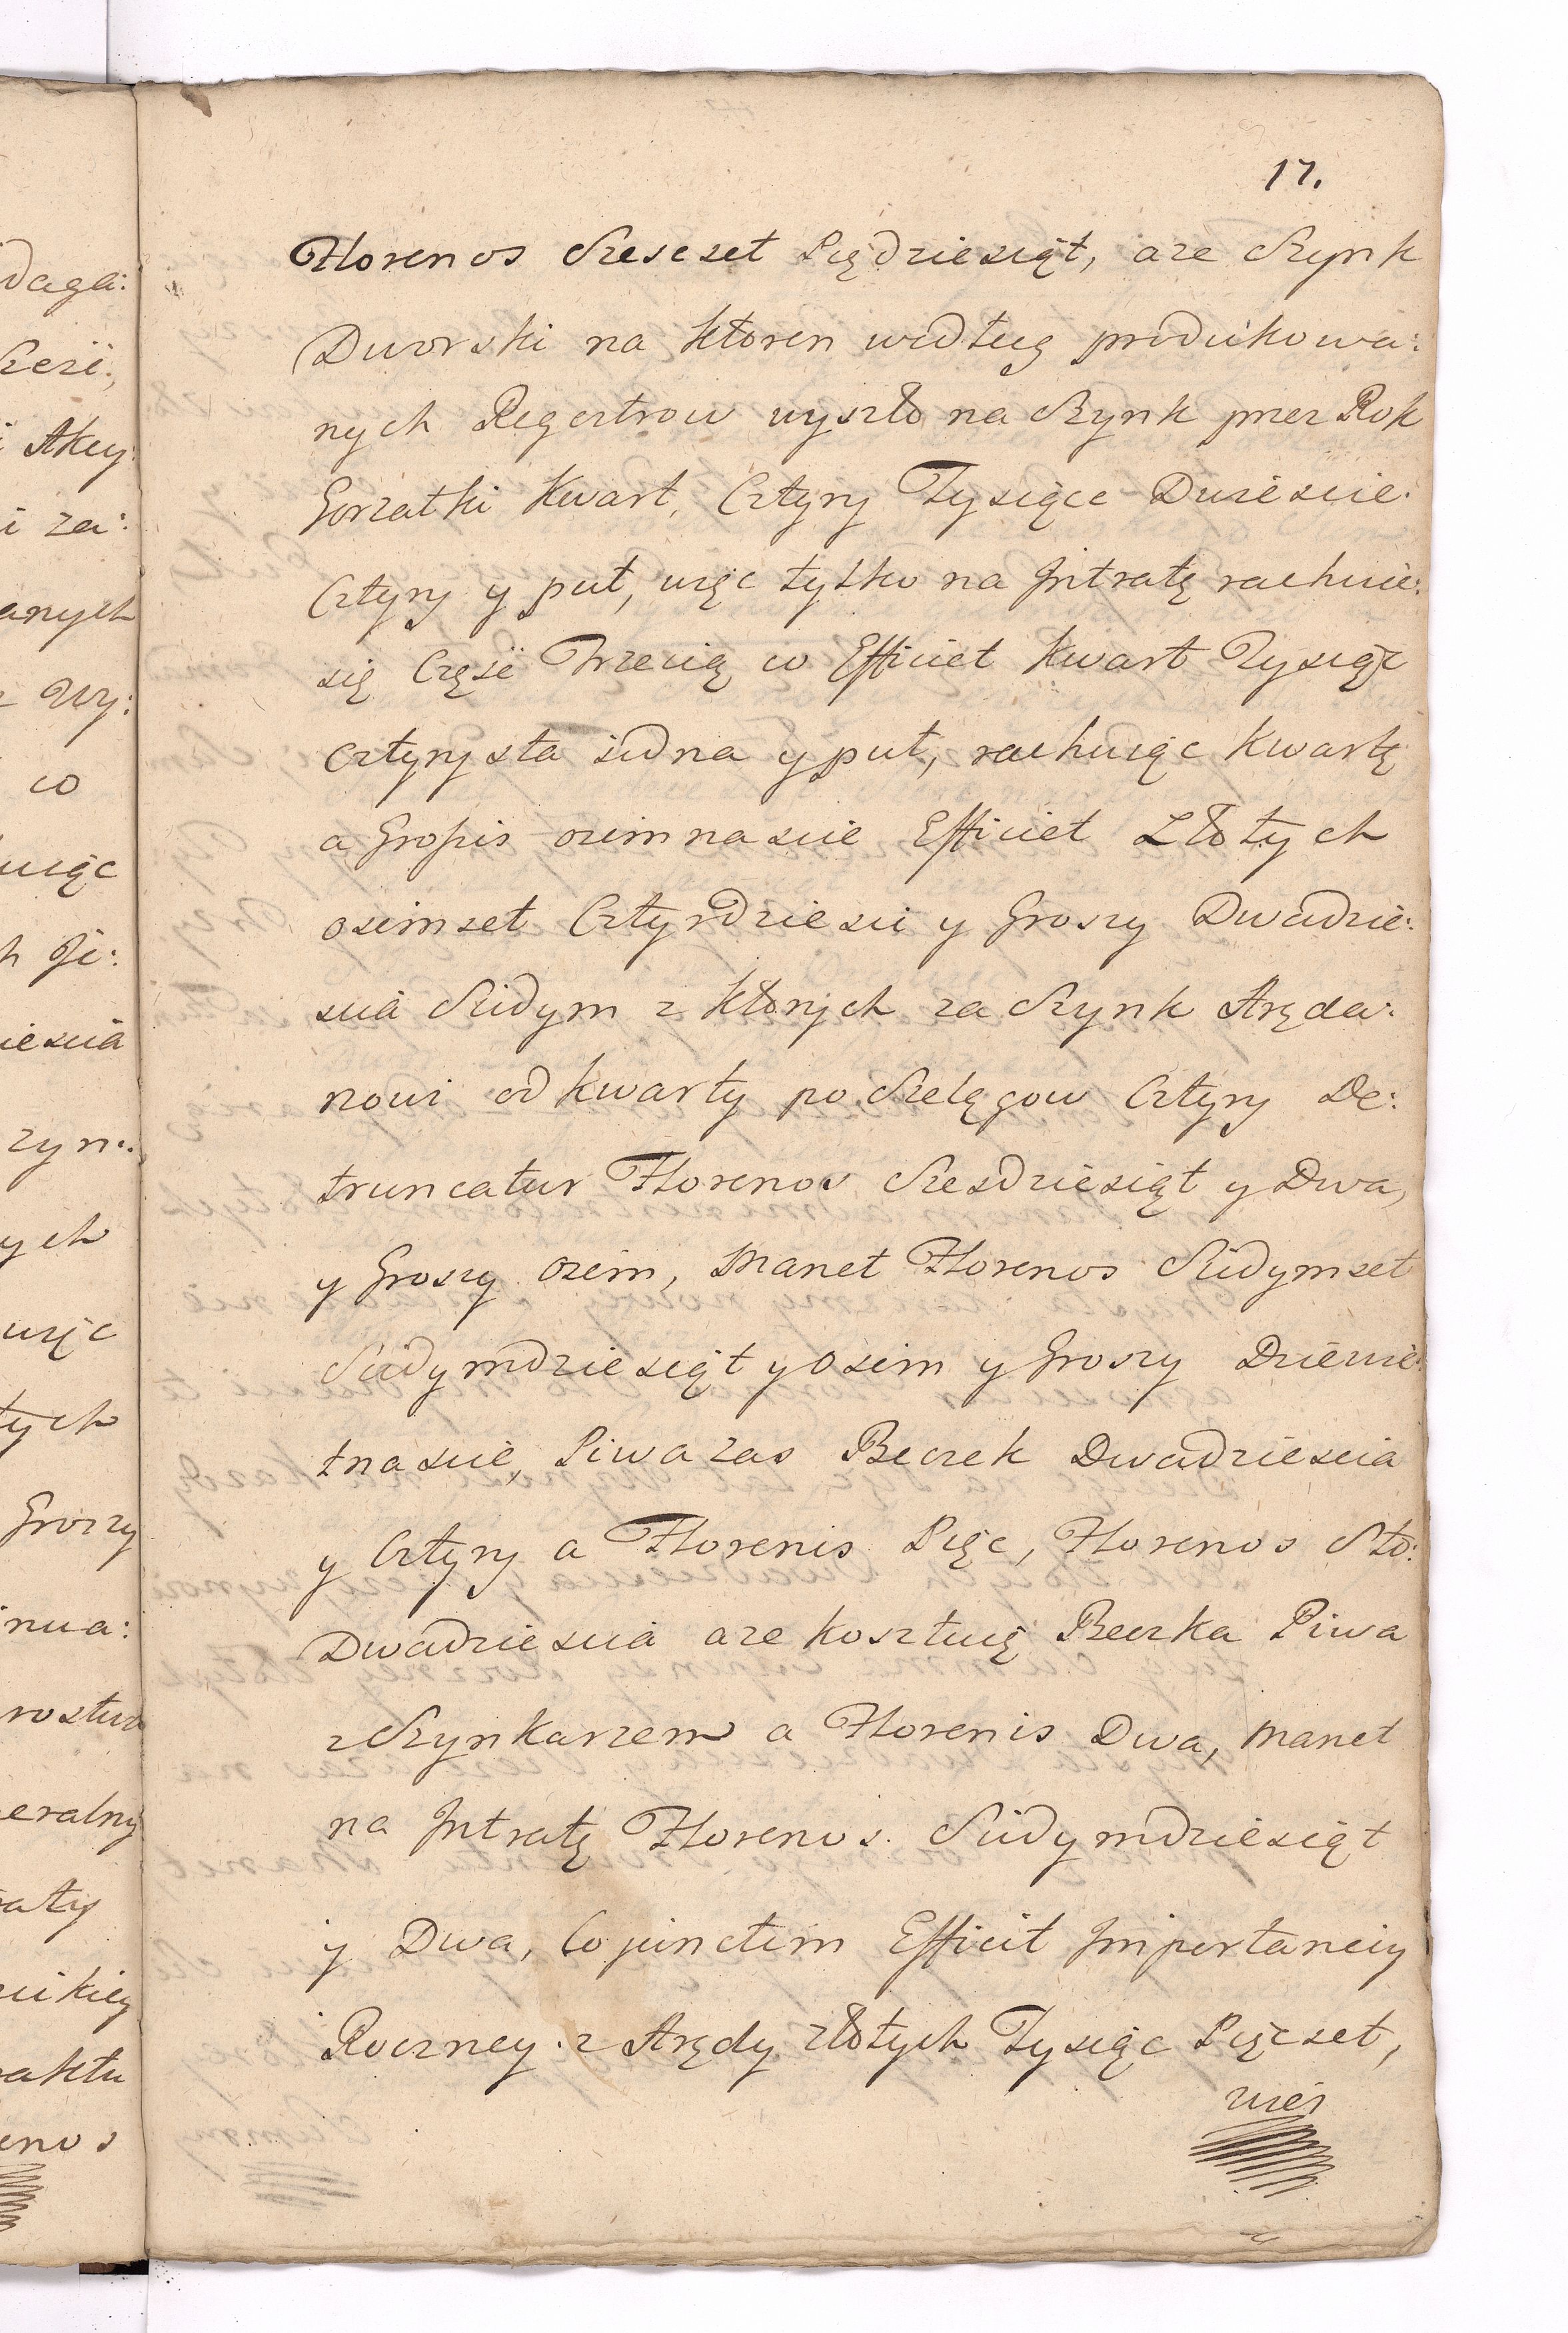 17.
Florenos Szescset Piędziesiąt, aze Szynk
Dworski na ktoren według produkowa:
nych Regestrow wyszło na Szynk przez Rok
Gorzałki Kwart, Cztyry Tysiące Dwiescie.
Cztyry y puł, więc tylko na Jntratę rachuie:
się Częsć Trzecią co Efficiet Kwart Tysiąc
Cztyrysta iedna y puł, rachuiąc Kwartę
a Grossis osimnascie Efficiet Złotych
osimset Cztyrdziesci y Groszy Dwadzie:
scia Siedym z ktorych za Szynk Aręda:
rzowi od kwarty po Szelągow Cztyry De:
truncatur Florenos Szesdziesiąt y Dwa,
y Groszy osim, Manet Florenos Siedymset
Siedymdziesiąt y Osim y Groszy Dziewię:
tnascie, Piwa zas Beczek Dwadziescia
y Cztyry a Florenis Pięc, Florenos Sto:
Dwadziescia aze kosztuię Beczka Piwa
z Szynkarzem a Florenis Dwa, Manet
na Jntratę Florenos. Siedymdziesiąt
y Dwa, Co junctim Efficit Jmportanciy
Roczney z Arędy złotych Tysiąc Pięcset,
daga:
Akcy:
i za:
anych
Wy:
co
uiąc
iescia
zyn:
ych
uiąc
tych
Groszy
nua:
rostwa
eralny
aty
aktu
enos